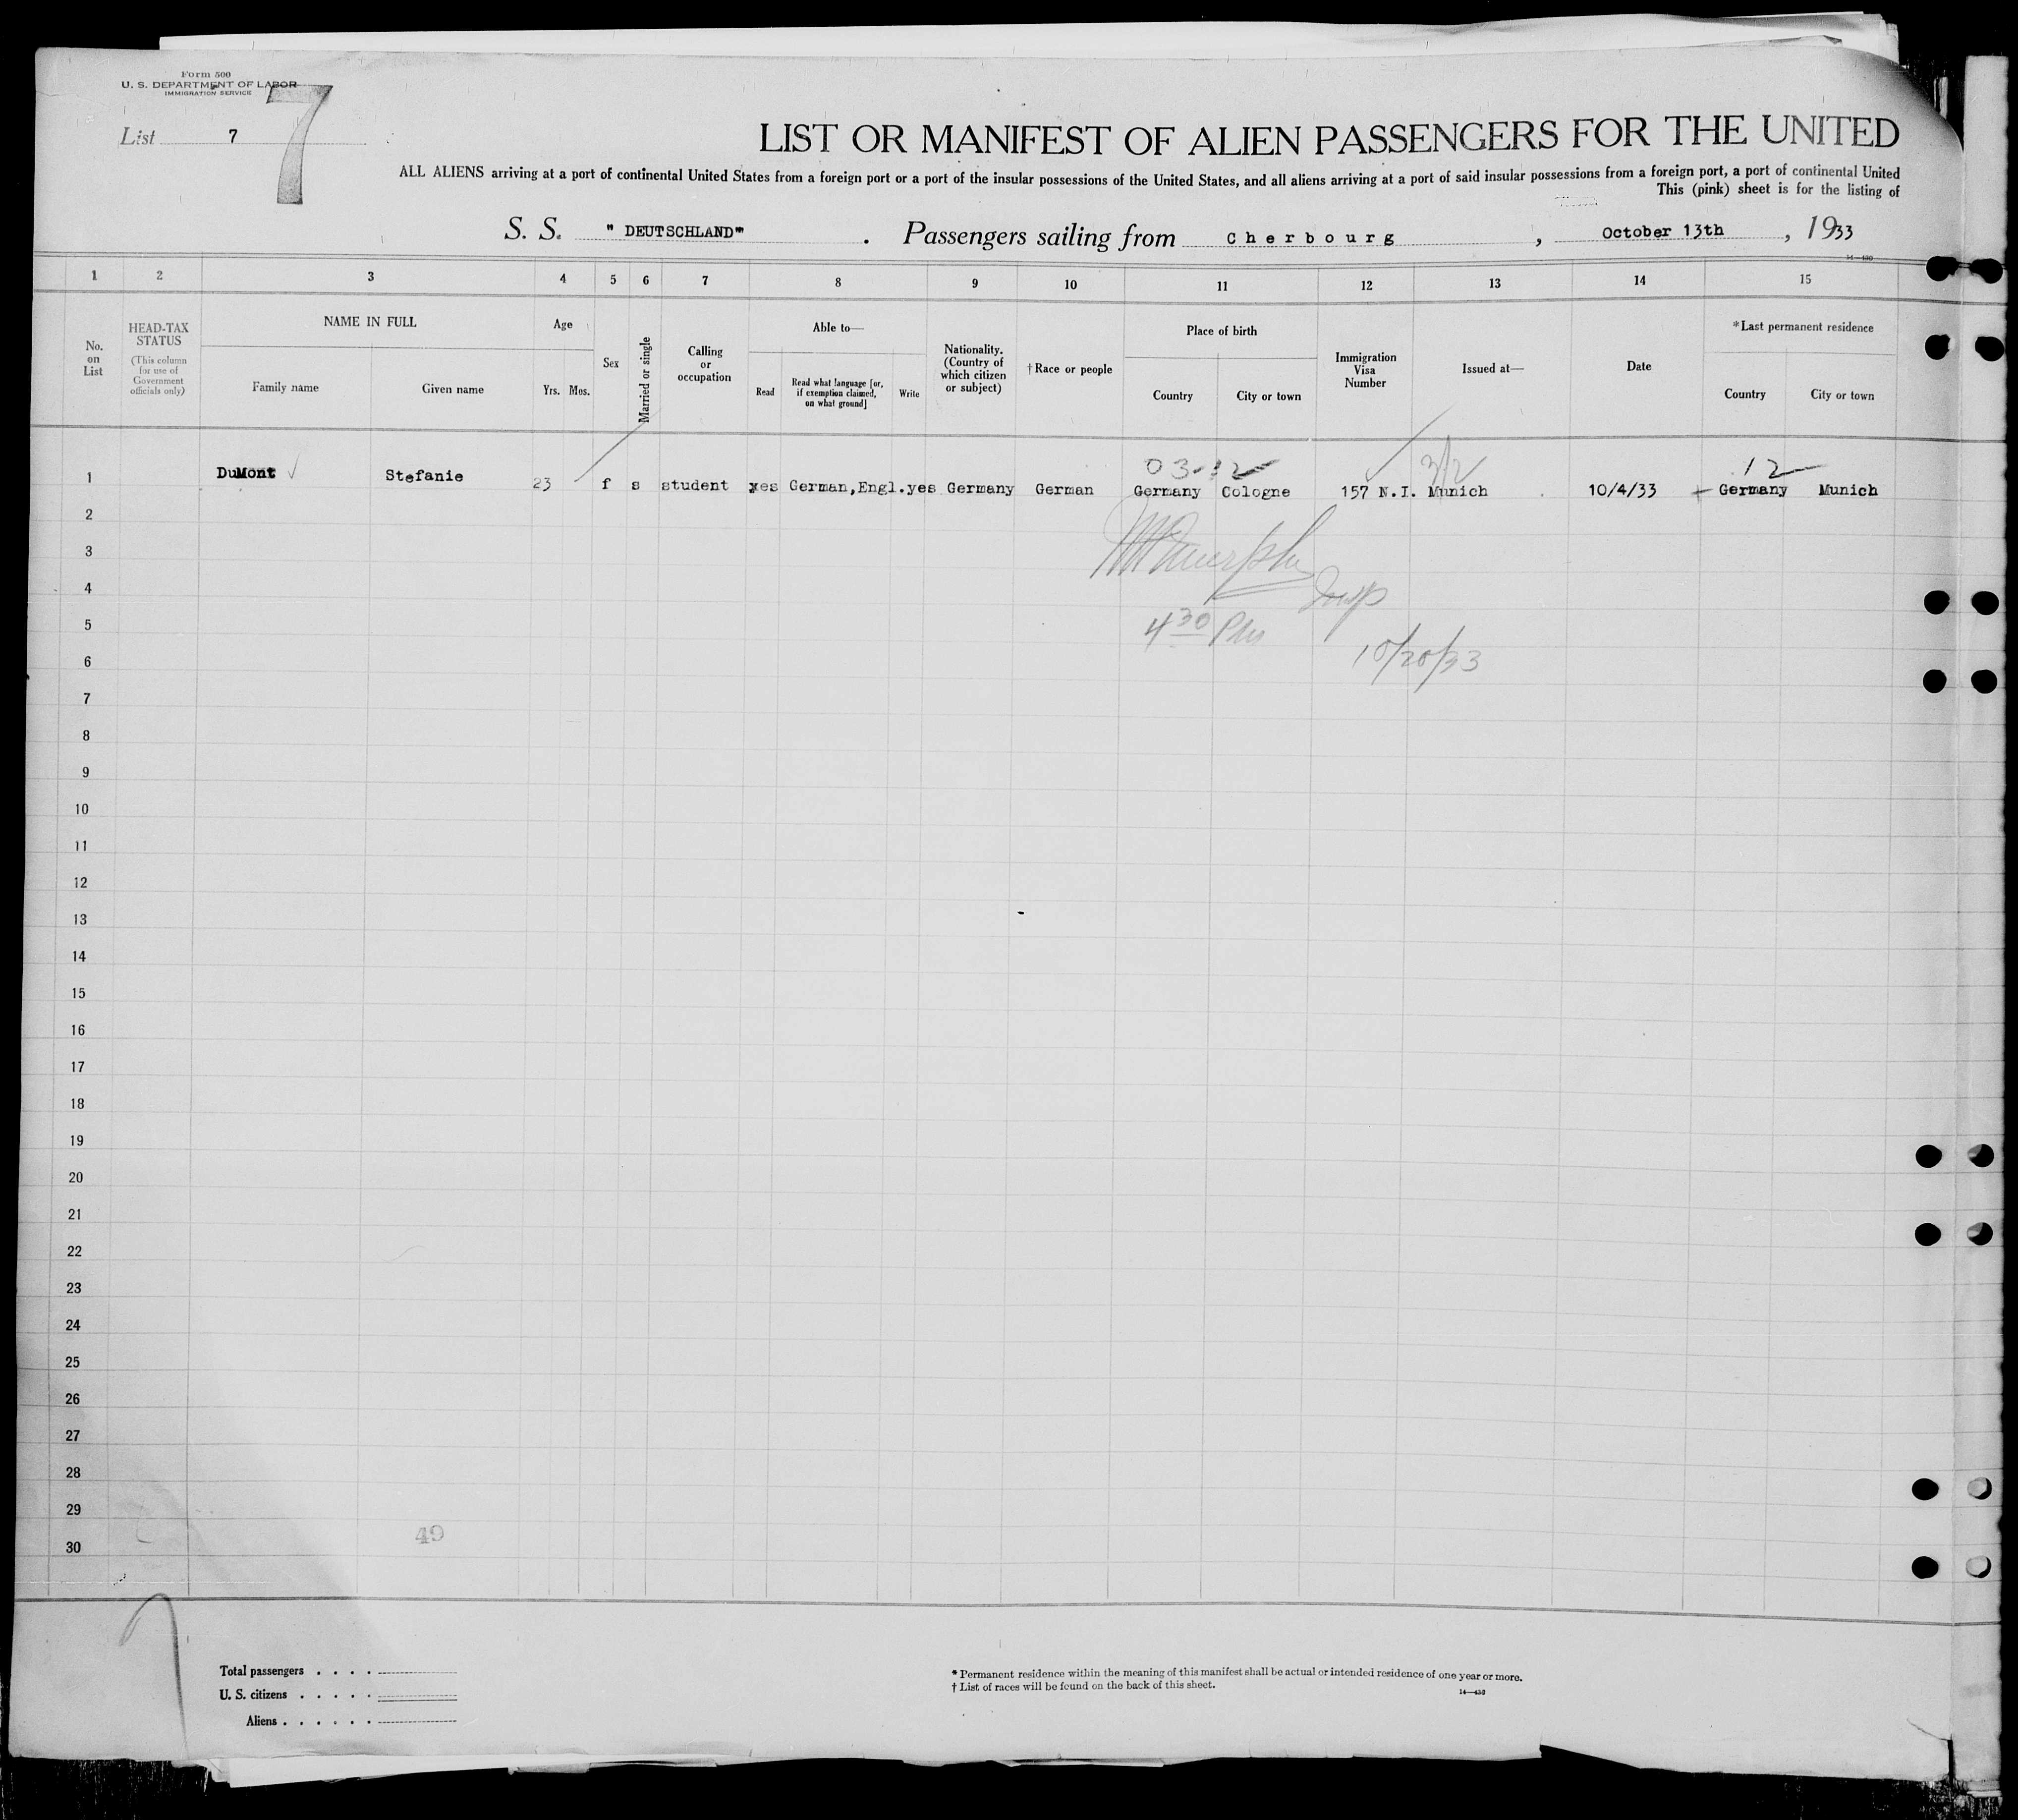 Form 500
U. S. DEPARTMENT OF LABOR
IMMIGRATION SERVICE
7
List 7
LIST OR MANIFEST OF ALIEN PASSENGERS FOR THE UNITED
ALL ALIENS arriving at a port of continental United States from a foreign port or a port of the insular possessions of the United States, and all aliens arriving at a port of said insular possessions from a foreign port, a port of continental United
This (pink) sheet is for the listing of
S. S. " DEUTSCHLAND" . Passengers sailing from Cherbourg , October 13th , 1933
14—430
1 2 3 4 5 6 7 8 9 10 11 12 13 14 15
No. on List
HEAD-TAX STATUS
(This column for use of Government officials only)
NAME IN FULL
Family name Given name
Age
Yrs. Mos.
Sex
Married or single
Calling or occupation
Able to—
Read
Read what language [or, if exemption claimed, on what ground]
Write
Nationality. (Country of which citizen or subject)
†Race or people
Place of birth
Country City or town
Immigration Visa Number
Issued at—
Date
*Last permanent residence
Country City or town
03-12 3/2 12
1 DuMont Stefanie 23 f s student yes German,Engl.yes Germany German Germany Cologne 157 N.I. Munich 10/4/33 Germany Munich
2
3
Murphy
4
Insp
5
4 30 PM
6
10/20/33
7
8
9
10
11
12
13
14
15
16
17
18
19
20
21
22
23
24
25
26
27
28
29
49
30
Total passengers . . . .
U. S. citizens . . . . .
Aliens . . . . . .
* Permanent residence within the meaning of this manifest shall be actual or intended residence of one year or more.
† List of races will be found on the back of this sheet.
14—430